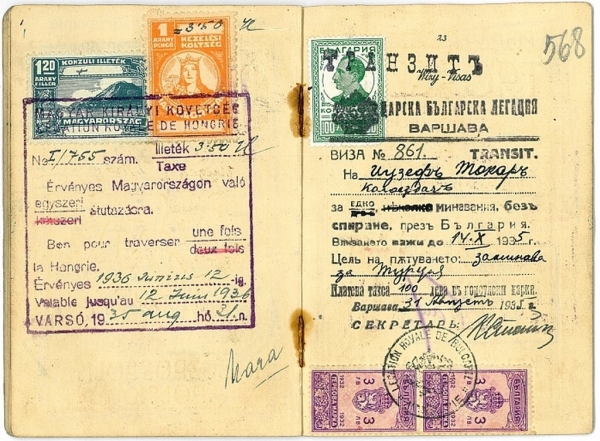 KONZULI ILLETÉK
1.20
ARANY FILLÉR
MAGYARORSZÁG
= 3·50
1
ARANY PENGŐ
KEZELÉSI KÖLTSÉG
MAGYAR KIRÁLYI KÖVETSÉG
LÉGATION ROYALE DE HONGRIE
No I/1755 szám.
Illeték 3·50
Taxe
Érvényes Magyarországon való
egyszeri átutazásra.
kétszeri
Ben pour traverser une fois
deux fois
la Hongrie.
Érvényes 1936 Junius 12 -ig.
Valable jusqu'au 12 Juni 1936
VARSÓ, 1935 aug hó. 31 n.
23
568
БЪЛГАРИЯ
100
ТРАНЗИТЪ
Way-Visas
БЪЛГАРСКА ЛЕГАЦИЯ
ВАРШАВА
ВИЗА № 861 TRANSIT.
На Иузефъ Токаръ
за едно минавания, безъ
спиране, презъ България.
Влизането важи до 14·X 1935 г.
Цель на пѫтуването: заминава
за Турция
Платена такса 100 лева въ гербови марки.
Варшава 31 Августъ 1935 г.
СЕКРЕТАРЬ:
LEGATION ROYALE DE BULGARIE
3 ЛВ 1932
3 ЛВ 1932